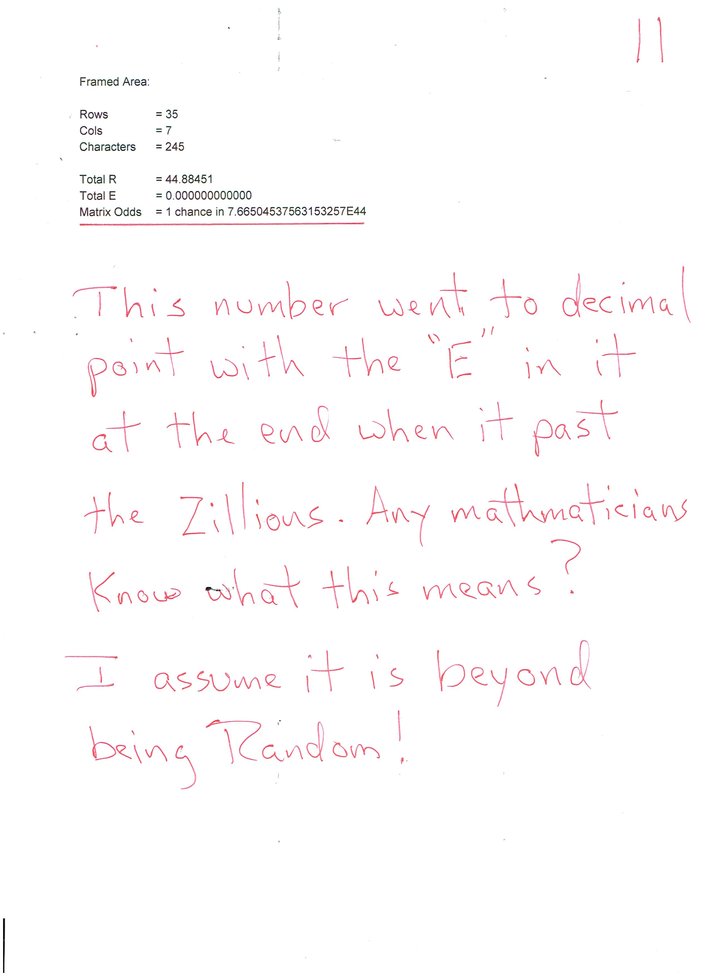 11
Framed Area:
Rows = 35
Cols = 7
Characters = 245
Total R = 44.88451
Total E = 0.000000000000
Matrix Odds = 1 chance in 7.66504537563153257E44
This number went to decimal
point with the "E" in it
at the end when it past
the Zillions. Any mathmaticians
Know what this means?
I assume it is beyond
being Random!